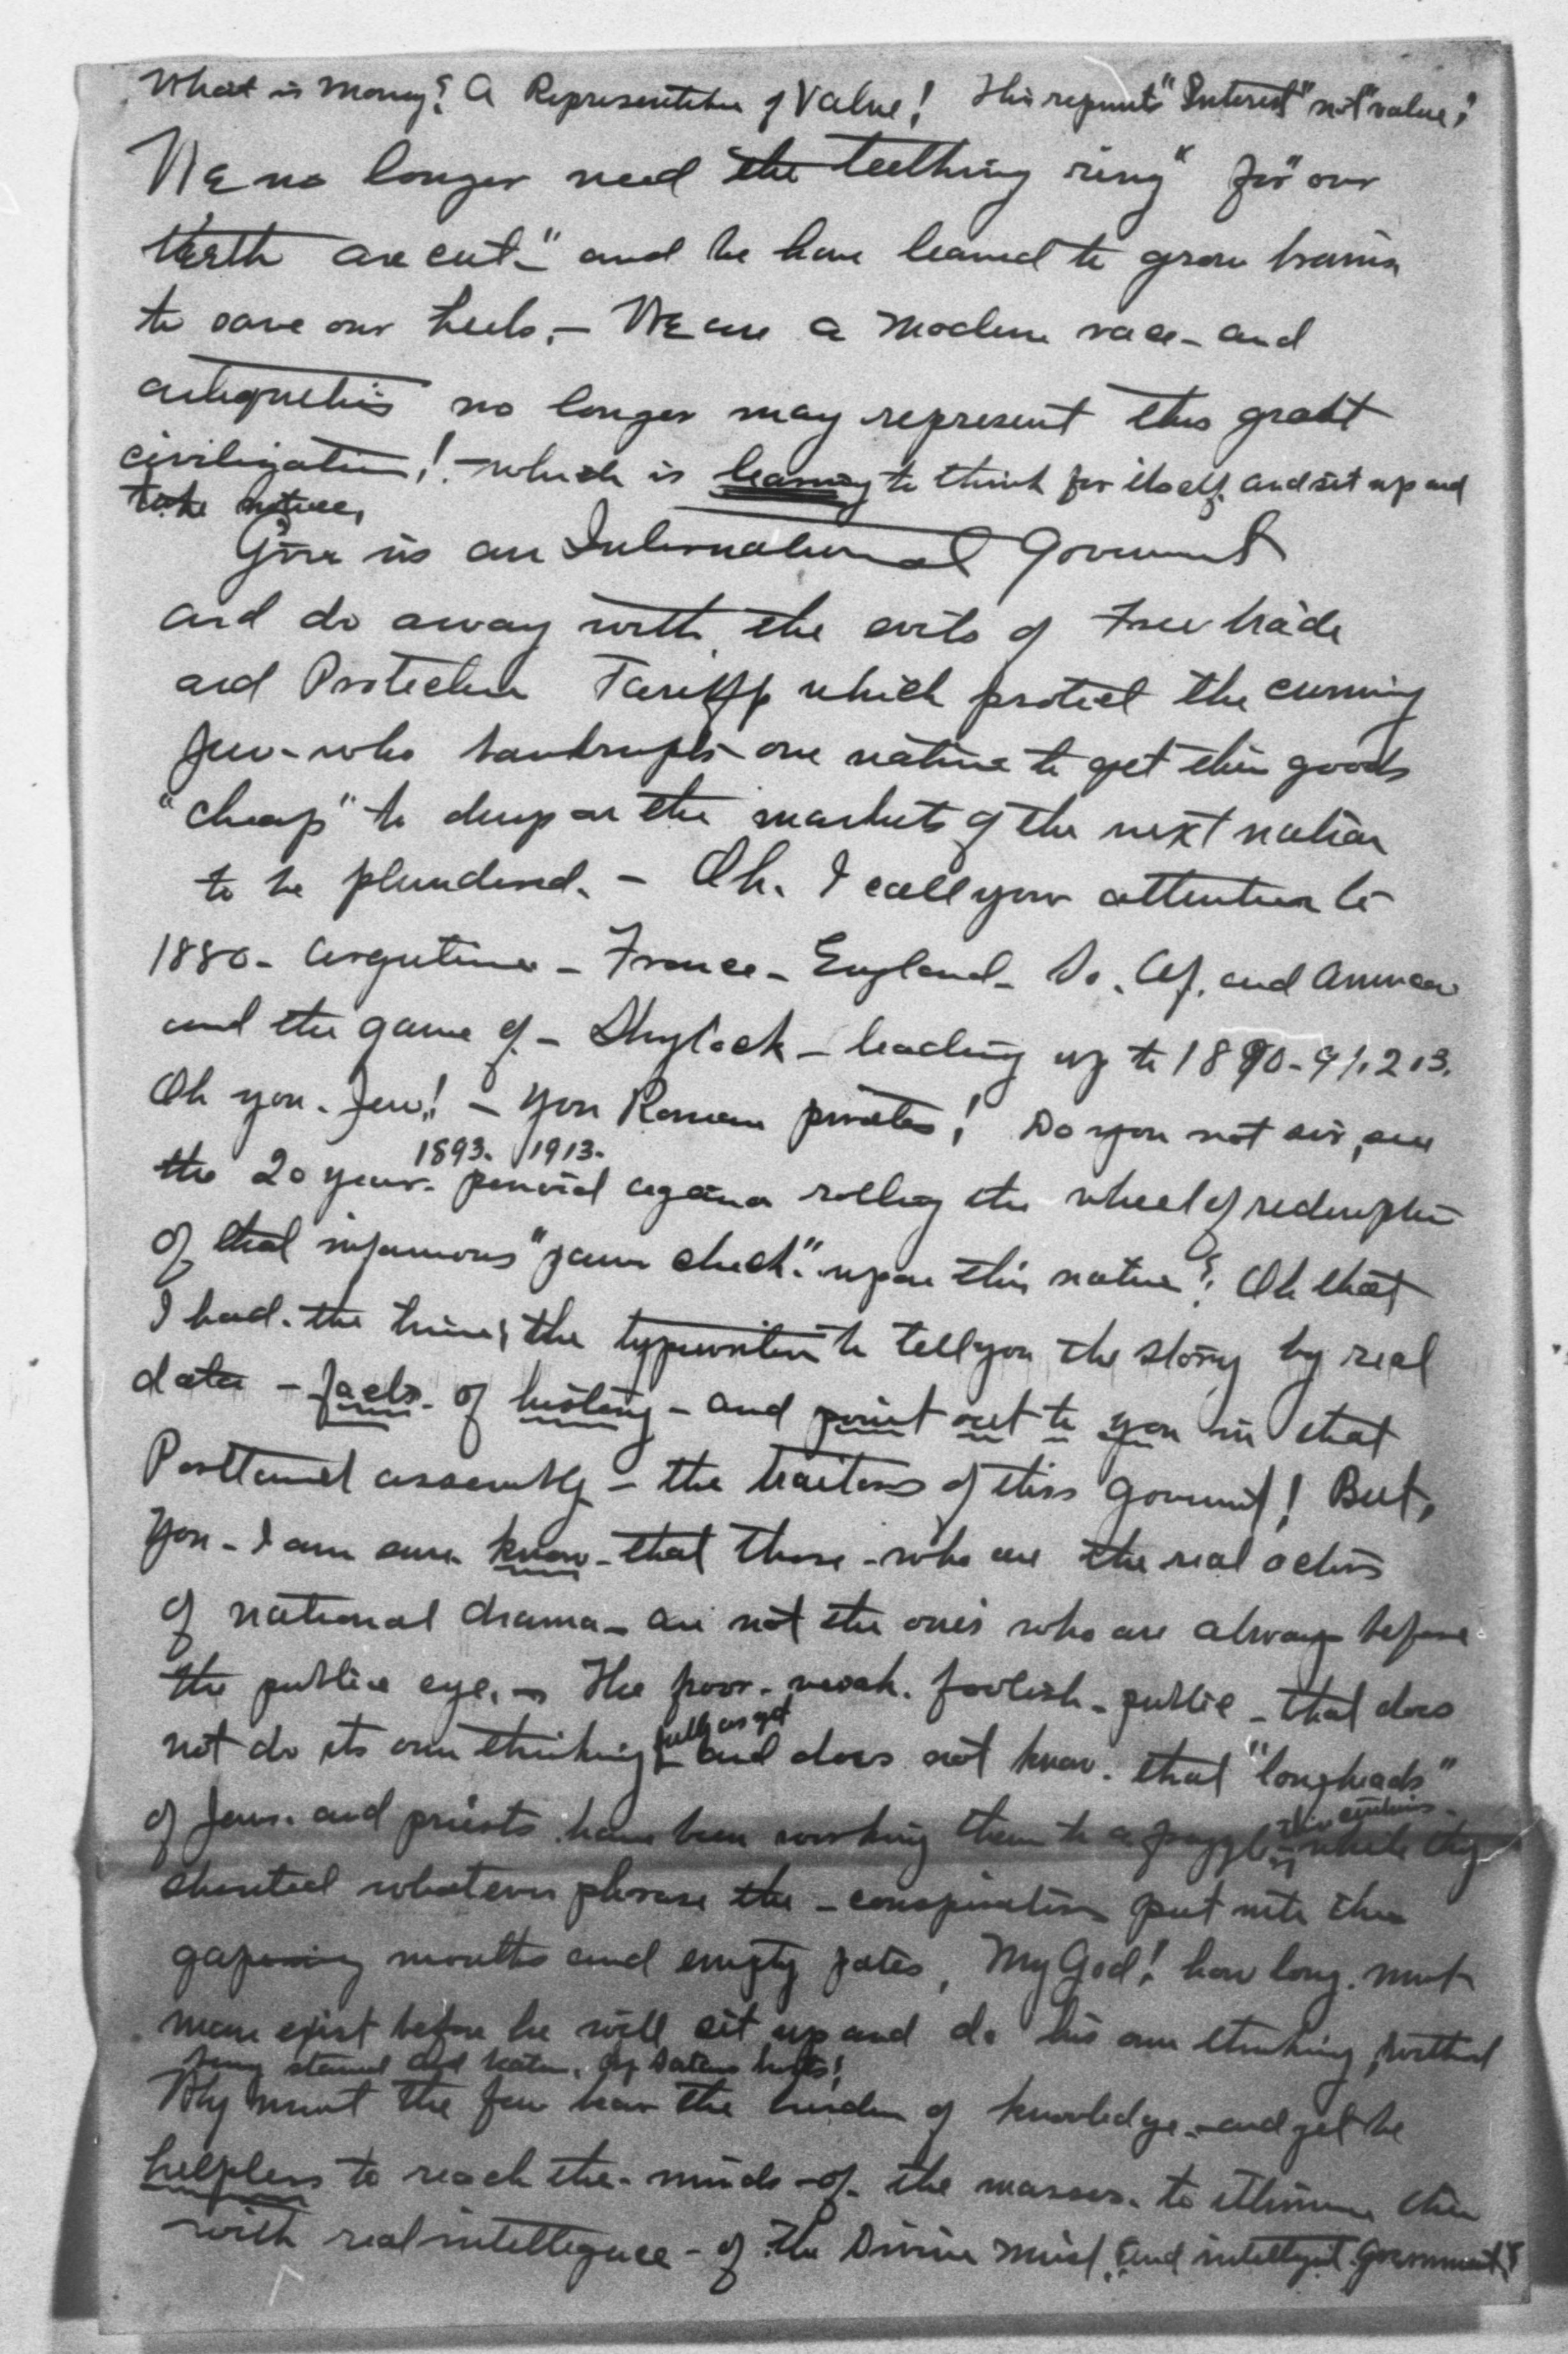 What is Money? A Representative of Value! This repents "Interest" not "value"!
We no longer need the teething ring" for "our
teeth are cut-" and we have learned to grow brains
to save our heels. - We are a modern race - and
antiquities no longer may represent this great
civilization! - which is learning to think for itself and sit up and
take notice,
Give us an International Goverment
and do away with the evils of Free trade
and Protection Tariff which protect the cunning
Jew - who bankrupts one nation to get their goods
"cheap" to dump on the markets of the next nation
to be plundered. - Oh. I call your attention to
1880 - Argentine - France - England - So. Af. and America
and the game of - Shylock - leading up to 1890 - 91. 2. 3.
Oh you. Jew! - You Roman pirates! Do you not sir, see
1893. 1913.
the 20 year. period again rolling the wheel of redemption
of that infamous " check." upon this nation? Oh that
I had. the time, the typewriter to tell you the story by real
data - facts. of history - and point out to you in that
assembly - the traitors of this Goverment! But,
You - I am sure know - that those - who are the real actors
of national drama - are not the ones who are always before
the public eye. - The poor. weak. foolish - public - that does
not do its own thinking and does not know. that "longheads"
of Jews. and priests have been working them to a while they
shouted whatever phrase the - conspirators put into their
gapeing mouths and empty pates, My God! how long. must
man exist before he will sit up and do his own thinking, without
being starved and beaten. by Satans hosts!
Why must the few bear the burden of knowledge. - and yet be
helpless to reach the - minds - of - the masses. to illumine them
with real intelligence - of the Divine Mind. and intelligent Government?